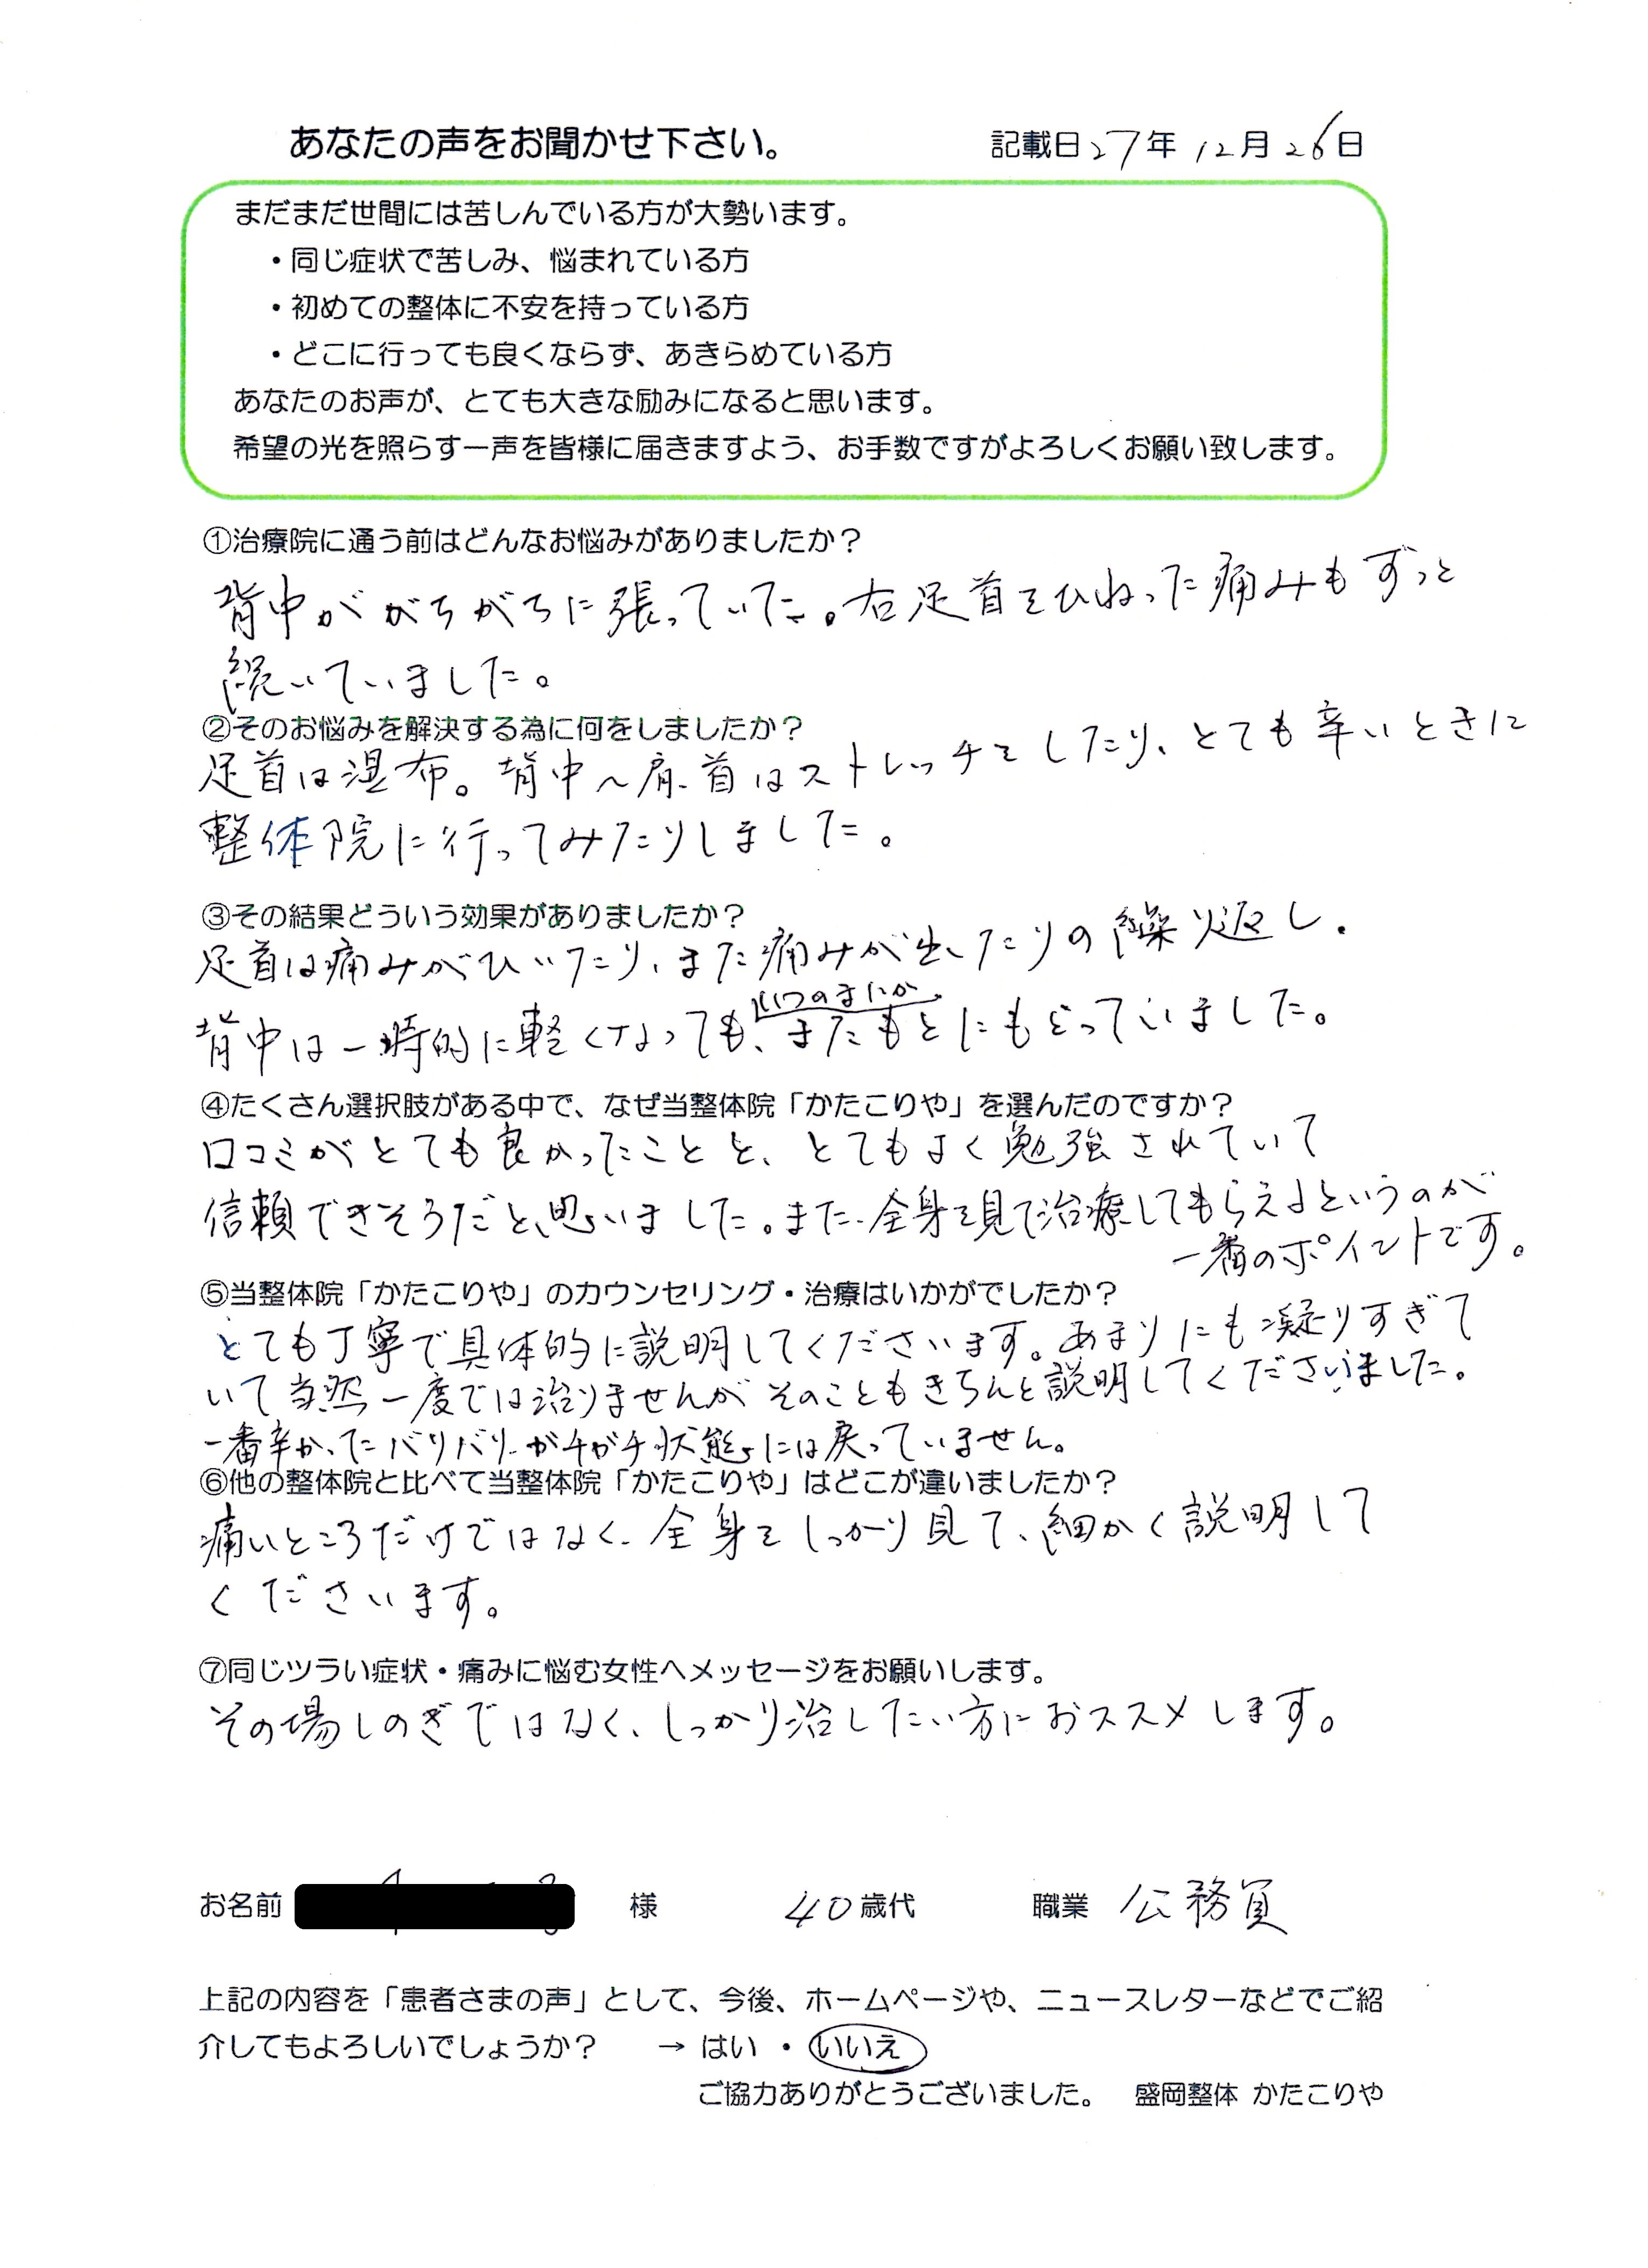 あなたの声をお聞かせ下さい。 記載日27年12月26日
まだまだ世間には苦しんでいる方が大勢います。
・同じ症状で苦しみ、悩まれている方
・初めての整体に不安を持っている方
・どこに行っても良くならず、あきらめている方
あなたのお声が、とても大きな励みになると思います。
希望の光を照らす一声を皆様に届きますよう、お手数ですがよろしくお願い致します。
①治療院に通う前はどんなお悩みがありましたか？
背中ががちがちに張っていた。右足首をひねった痛みもずっと
続いていました。
②そのお悩みを解決する為に何をしましたか？
足首は湿布。背中～肩、首はストレッチをしたり、とても辛いときに
整体院に行ってみたりしました。
③その結果どういう効果がありましたか？
足首は痛みがひいたり、また痛みが出たりの繰り返し。
いつのまにか
背中は一時的に軽くなっても、またもとにもどっていました。
④たくさん選択肢がある中で、なぜ当整体院「かたこりや」を選んだのですか？
口コミがとても良かったことと、とてもよく勉強されていて
信頼できそうだと思いました。また、全身を見て治療してもらえるというのが
一番のポイントです。
⑤当整体院「かたこりや」のカウンセリング・治療はいかがでしたか？
とても丁寧で具体的に説明してくださいます。あまりにも凝りすぎて
いて当然一度では治りませんがそのこともきちんと説明してくださいました。
一番辛かったバリバリガチガチ状態には戻っていません。
⑥他の整体院と比べて当整体院「かたこりや」はどこが違いましたか？
痛いところだけではなく、全身をしっかり見て、細かく説明して
くださいます。
⑦同じツラい症状・痛みに悩む女性へメッセージをお願いします。
その場しのぎではなく、しっかり治したい方におススメします。
お名前 様 40歳代 職業 公務員
上記の内容を「患者さまの声」として、今後、ホームページや、ニュースレターなどでご紹
介してもよろしいでしょうか？ → はい ・ いいえ
ご協力ありがとうございました。 盛岡整体 かたこりや